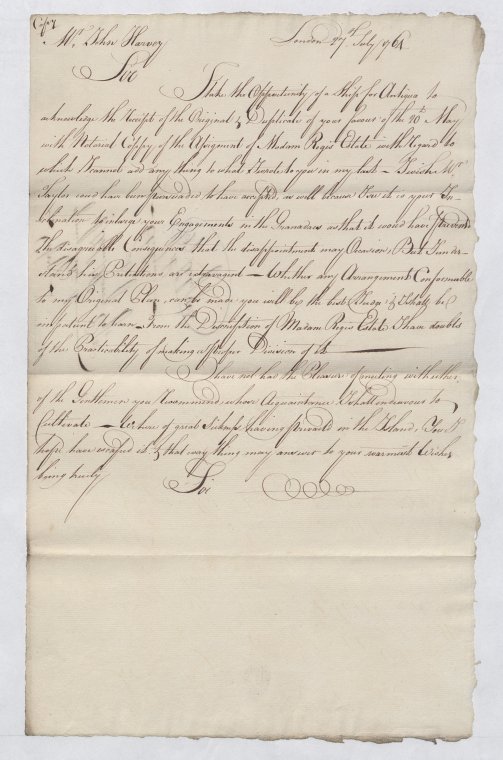 Copy
Mr. John Harvey London 27th July 1764
Sir
I take the Opportunity of a Ship for Antigua to
acknowledge the Receipt of the Original & Duplicate of your favour of the 16th May
with Notarial Coppy of the Assignment of Madam Regis Estate with regard to
which I cannot add any thing to what I wrote to you in my last – I wish Mr
Taylor cou'd have been perswaded to have accepted, as well because I see it is your In-
clination to enlarge your Engagements in the Granadaes as that it would have prevented
the disagreeable Consequences that the disappointment may Occasion, But I under-
stand his Expectations are extravagant – Whether any Arrangement Conformable
to my Original Plan, can be made you will be the best Judge & I shall be
impatient to learn – From the Description of Madam Regis Estate I have doubts
of the Practicability of making a Proper Division of it
I have not had the Pleasure of meeting with either
of the Gentlemen you Recommend whose Acquaintance I shall endeavour to
Cultivate – We hear of great Sickness having prevaild on the Island, You I
hope have escaped it & that every thing may answer to your warmest Wishes
being truly
Sir